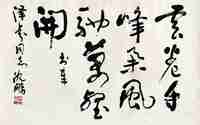 雲卷千
峰集風
馳萬壑
開 书奉
同志 沈鵬